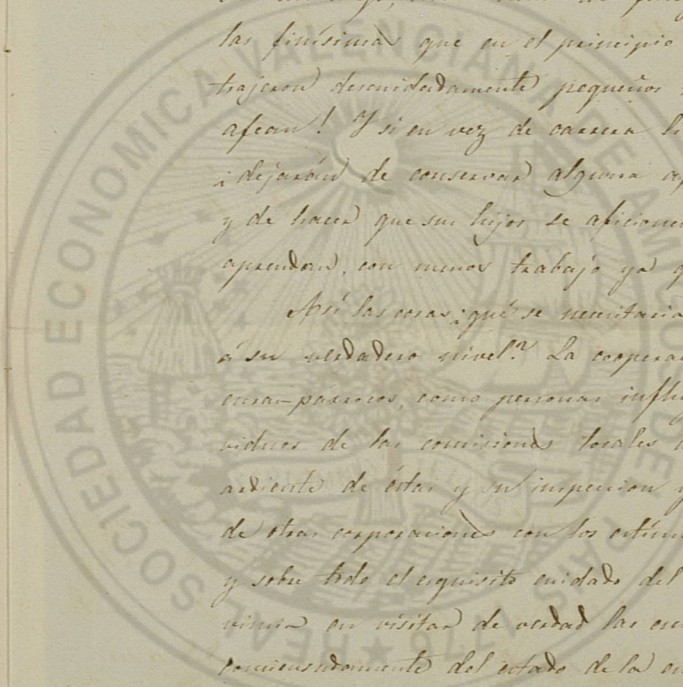 las finisimas que en el principio
trajeron descuidadamente pequeños
afean! Y si en vez de carrera
¿dejarán de conservar alguna
y de hacer que sus hijos se aficionen
aprendan, con menos trabajo ya q
Así las cosas ¿qué se necesitaria
á su verdadero nivel? La coopera
cura-párrocos, como personas influ
viduos de las comisiones locales
ardiente de éstas y su inspeccion y
de otras corporaciones con los
y sobre todo el esquisito cuidado del
en visitar de verdad las
del estado de la
REAL SOCIEDAD ECONOMICA VALENCIANA DE AMIGOS DEL PAIS